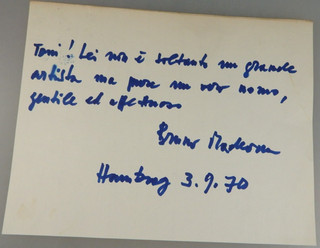 Toni! Lei non è soltanto un grande
artista ma pure un vero uomo,
gentile ed affettuoso
Bruno Maderna
Hamburg 3.9.70